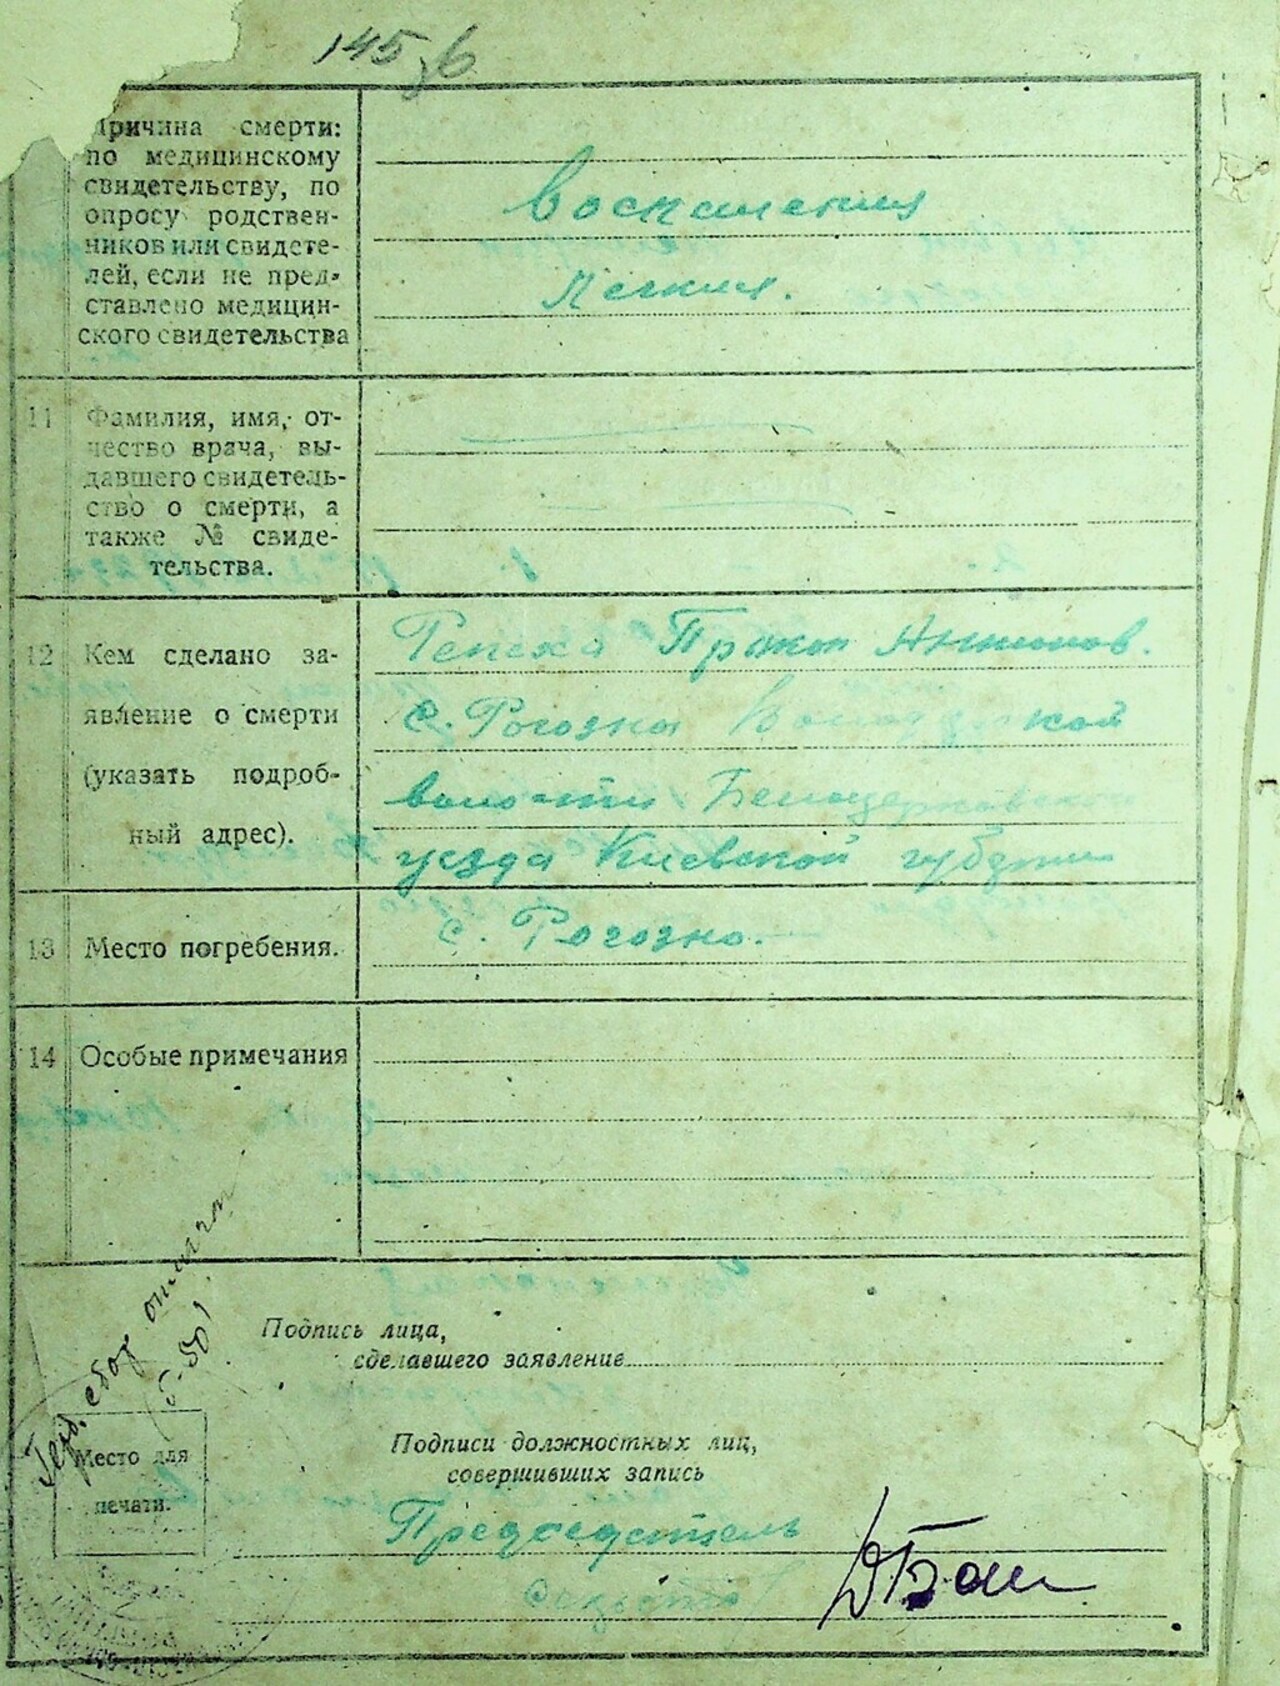 145
Причина смерти:
по медицинскому
свидетельству, по
опросу родствен-
ников или свидете-
лей, если не пред-
ставлено медицин-
ского свидетельства
Воспаления
легких.
11 Фамилия, имя, от-
чество врача, вы-
давшего свидетель-
ство о смерти, а
также № свиде-
тельства.
12 Кем сделано за-
явление о смерти
(указать подроб-
ный адрес).
Репеха Прокоп
с. Рогозна
волости Белоцерковского
уезда Киевской губернии
13 Место погребения.
с. Рогозно.
14 Особые примечания
Герб. сбор
Подпись лица,
сделавшего заявление
Место для
печати.
Подписи должностных лиц,
совершивших запись
Председатель